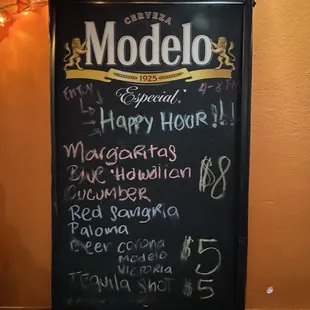 CERVEZA
Modelo
1925
Especial
4-8PM
HAPPY HOUR!!!
Margaritas
Blue Hawaiian $8
Cucumber
Red Sangria
Paloma
Beer corona $5
modelo
VICTORIA
TEQUILA SHOT $5